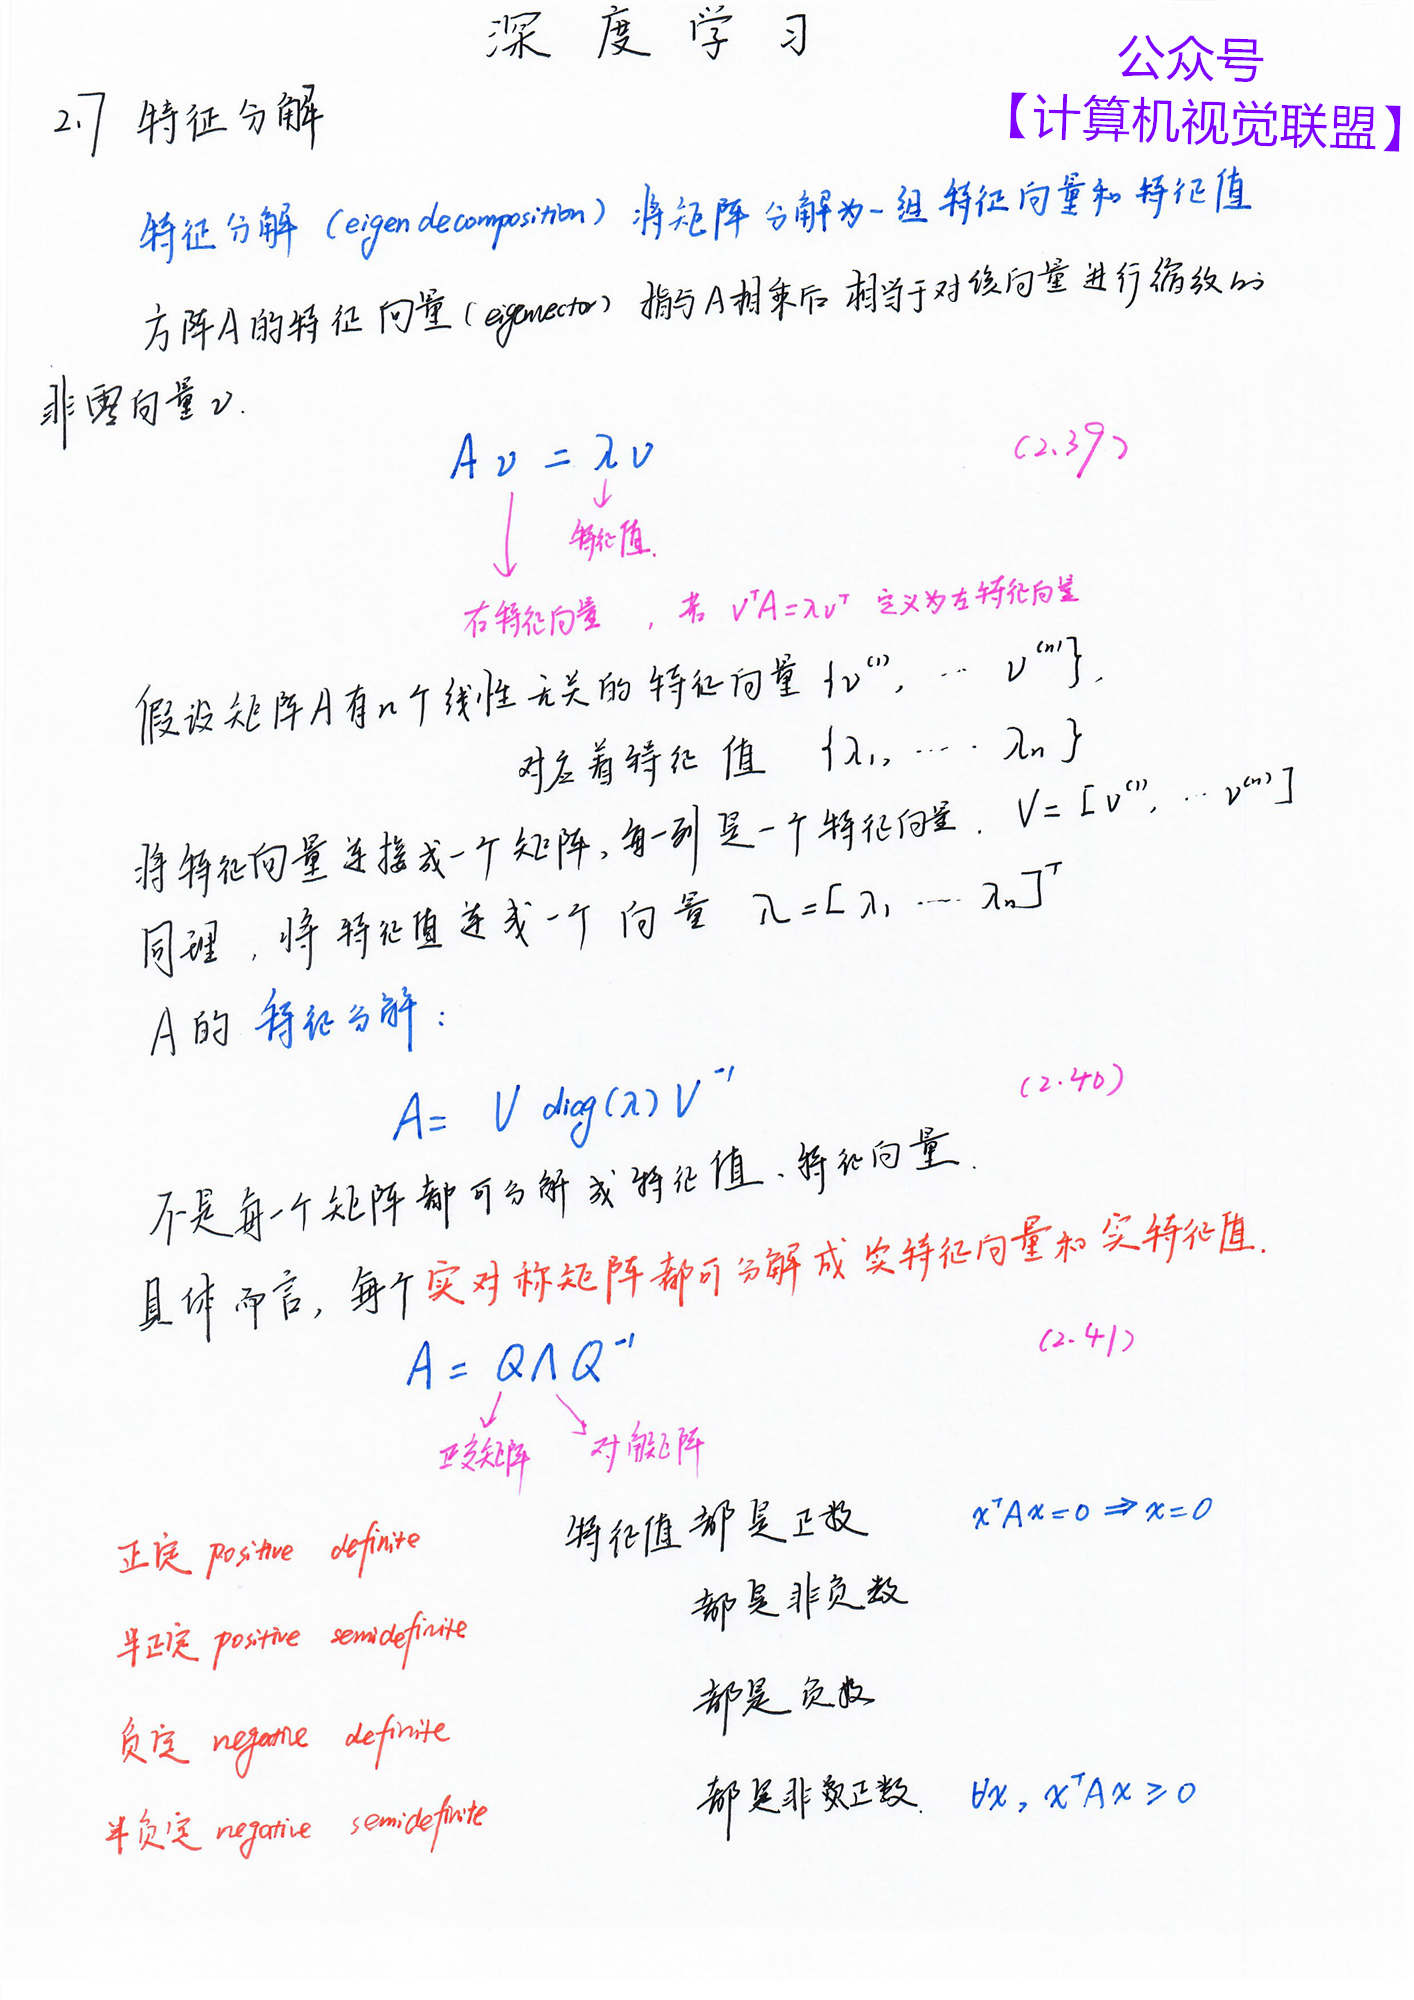 深度学习
公众号
【计算机视觉联盟】
2.7 特征分解
特征分解 (eigen decomposition) 将矩阵分解为一组特征向量和特征值
方阵A的特征向量(eigenvector) 指与A相乘后相当于对该向量进行缩放的
非零向量ν.
Aν = λν (2.39)
特征值.
右特征向量, 若 νᵀA=λνᵀ 定义为左特征向量
假设矩阵A有n个线性无关的特征向量 {ν⁽¹⁾, … ν⁽ⁿ⁾},
对应着特征值 {λ₁, …. λₙ}
将特征向量连接成一个矩阵,每一列是一个特征向量. V=[ν⁽¹⁾, … ν⁽ⁿ⁾]
同理,将特征值连成一个向量 λ=[λ₁ …. λₙ]ᵀ
A的特征分解:
A= V diag(λ) V⁻¹ (2.40)
不是每一个矩阵都可分解成特征值、特征向量.
具体而言,每个实对称矩阵都可分解成实特征向量和实特征值.
A = QΛQ⁻¹ (2.41)
正交矩阵 对角矩阵
正定 positive definite 特征值都是正数 xᵀAx=0 ⇒ x=0
半正定 positive semidefinite 都是非负数
负定 negative definite 都是负数
半负定 negative semidefinite 都是非正数. ∀x, xᵀAx ≥ 0